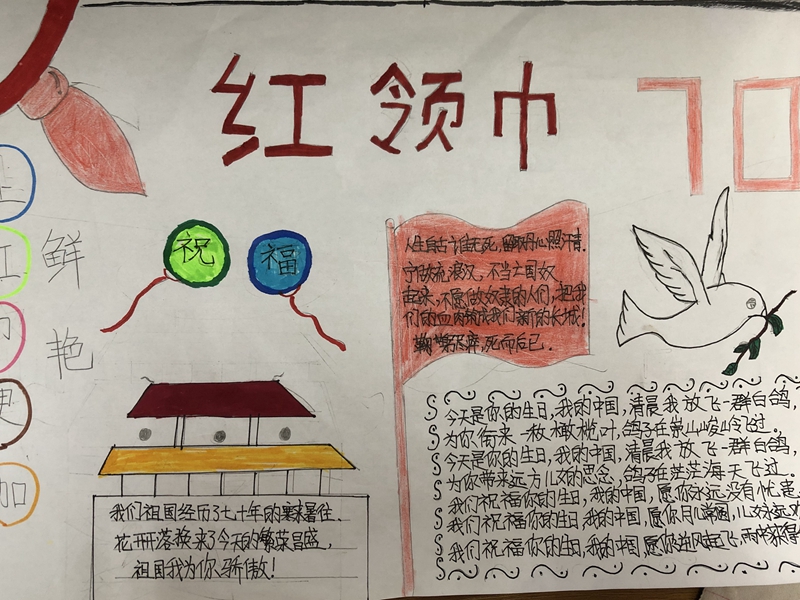 红领巾 70
鲜
艳
加
祝 福
人生自古谁无死,留取丹心照汗青.
宁做流浪汉,不当亡国奴
起来,不愿做奴隶的人们,把我
们的血肉筑成我们新的长城!
鞠躬尽瘁,死而后已.
我们祖国经历了七十年的寒来暑往.
花开花落换来了今天的繁荣昌盛,
祖国我为你骄傲!
今天是你的生日,我的中国,清晨我放飞一群白鸽,
为你衔来一枚橄榄叶,鸽子在崇山峻岭飞过.
今天是你的生日,我的中国,清晨我放飞一群白鸽,
为你带来远方儿女的思念,鸽子在茫茫海天飞过.
我们祝福你的生日,我的中国,愿你永远没有忧患
我们祝福你的生日,我的中国,愿你月儿常圆,儿女永远欢
我们祝福你的生日,我的中国,愿你逆风起飞,雨中获得